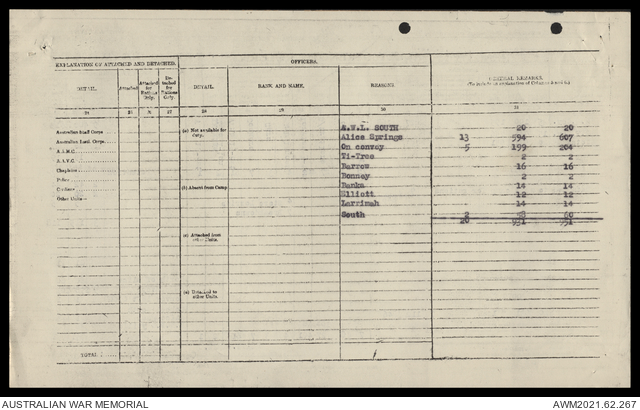 EXPLANATION OF ATTACHED AND DETACHED. OFFICERS.
DETAIL. Attached Attached for Rations Only. De-tached for Rations Only. DETAIL RANK AND NAME. REASONS GENERAL REMARKS.
24 25 26 27 28 29 30 31
A.W.L. SOUTH 20 20
Australian Staff Corps (a) Not available for duty. Alice Springs 13 594 607
Australian Instl. Corps On convoy 5 199 204
A.A.M.C. Ti-Tree 2 2
A.A.V.C. Barrow 16 16
Chaplains Bonney 2 2
Banka 14 14
(b) Absent from Camp Elliott 12 12
Other Units— Larrimah 14 14
South 2 58 60
20 931 951
(c) Attached from other Units.
(d) Detached to other Units.
TOTAL
AUSTRALIAN WAR MEMORIAL AWM2021.62.267